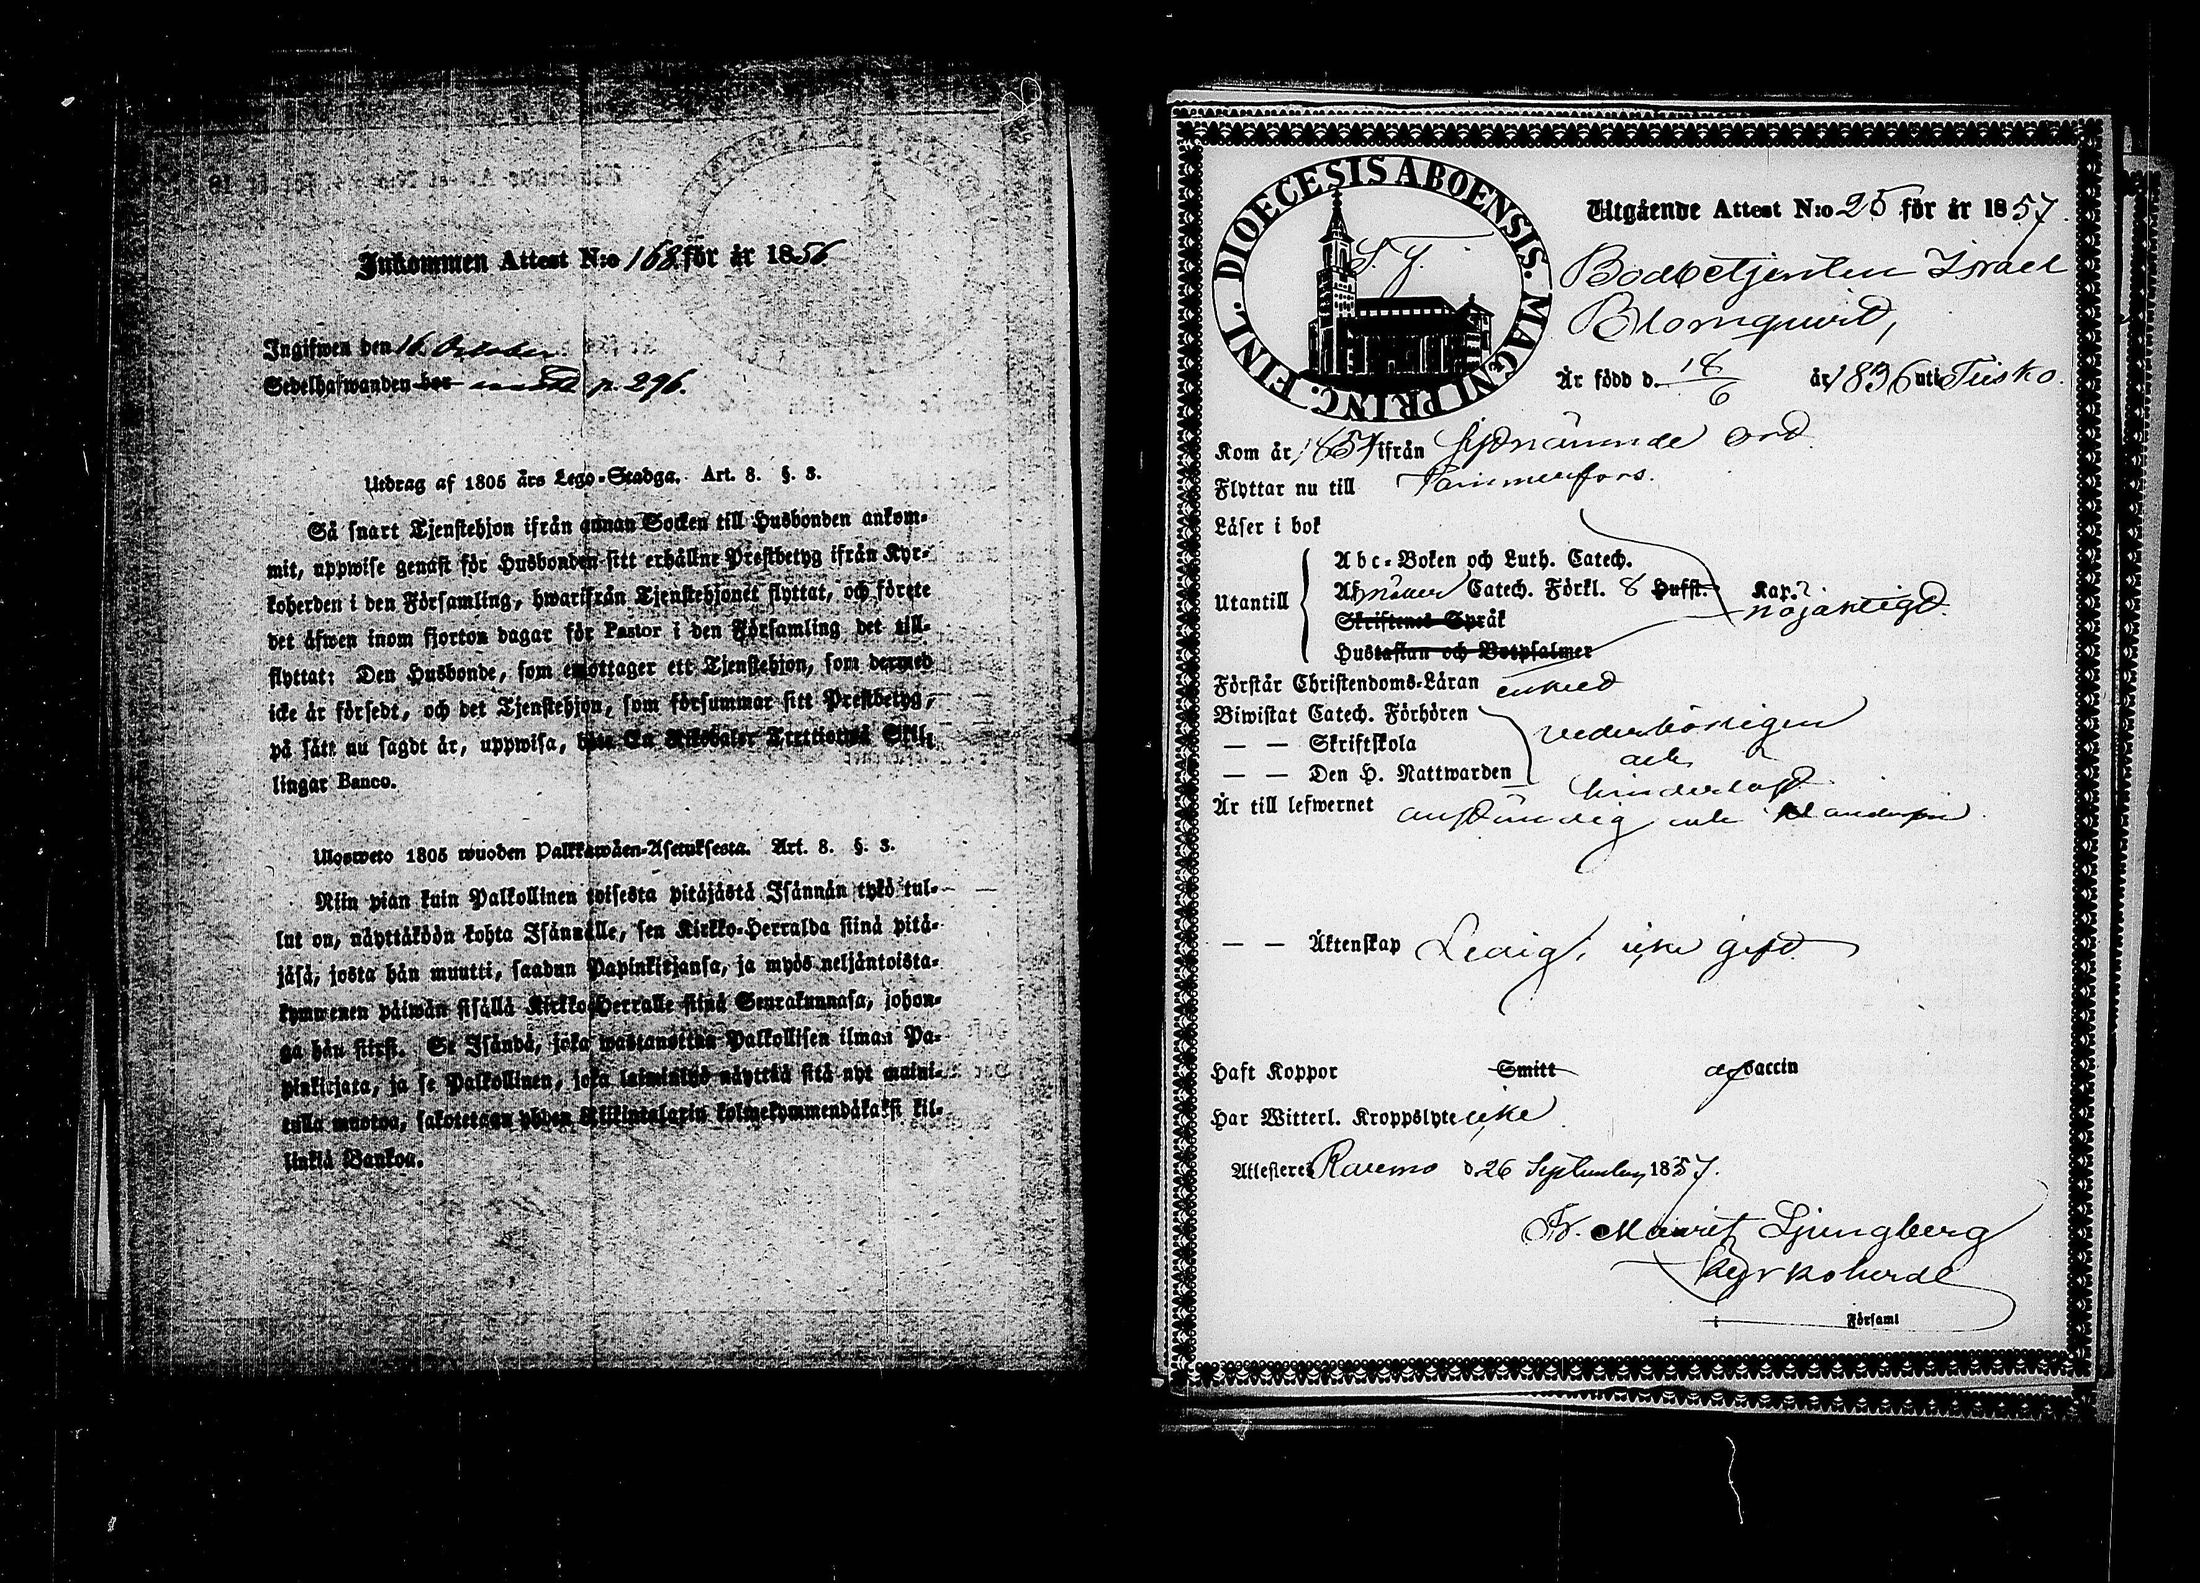 Inkommen Attest N:o 168 för år 1856
Ingifwen den 16 October
Sedelhafwanden bor p. 296.
Utdrag af 1805 års Lego-Stadga. Art. 8. §. 3.
Så snart Tjenstehjon ifrån annan Socken till Husbonden ankom-
mit, uppwise genast för Husbonden sitt erhållne Prestbetyg ifrån Kyr-
koherden i den Församling, hwarifrån Tjenstehjonet flyttat, och förete
det äfwen inom fjorton dagar för Pastor i den Församling det till-
flyttat: Den Husbonde, som emottager ett Tjenstehjon, som dermed
icke är försedt, och det Tjenstehjon, som försummar sitt Prestbetyg,
på sätt nu sagdt är, uppwisa, böte En Riksdaler Trettiotwå Skil-
lingar Banco.
Ulosweto 1805 wuoden Palkkawäen-Asetuksesta. Art. 8. §. 3.
Niin pian kuin Palkollinen toisesta pitäjästä Isännän tykö tul-
lut on, näyttäköön kohta Isännälle, sen Kirkko-Herralda siinä pitä-
jäsä, josta hän muutti, saadun Papinkirjansa, ja myös neljäntoista-
kymmenen päiwän sisällä Kirkko-Herralle siinä Seurakunnasa, johon-
ga hän siirsi. Se Isändä, joka wastanottaa Palkollisen ilman Pa-
pinkirjata, ja se Palkollinen, joka laiminlyö näyttää sitä nyt maini-
tulla muotoa, sakotetaan yhden Riikintalarin kolmekymmendäkaksi kil-
linkiä Bankoa.
DIOECESIS ABOENSIS. MAGNI PRINC. FINL.
S. J.
Utgående Attest N:o 25 för år 1857.
Bodbetjenten Israel
Blomqvist,
Är född d. 18/6 år 1836 uti Tusko.
Kom år 1854 ifrån sistnämnde ord
Flyttar nu till Tammerfors.
Läser i bok
Utantill
Abc-Boken och Luth. Catech.
Af nöuer Catech. Förkl. 8 Hufst. Kap.
nöjaktigt
Skriftenes Språk
Hustaflan och Botpsalmer
Förstår Christendoms-Läran enkelt
Biwistat Catech. Förhören vederbörligen
— — Skriftskola och
— — Den H. Nattwarden hinderlöst
Är till lefwernet anständig och
— — Äktenskap Ledig, icke gift
Haft Koppor Smitt af vaccin
Har Witterl. Kroppslyte icke
Attesterer Raumo d. 26 September 1857.
Fr. Maurit Ljungberg
Kyrkoherde
i Församl